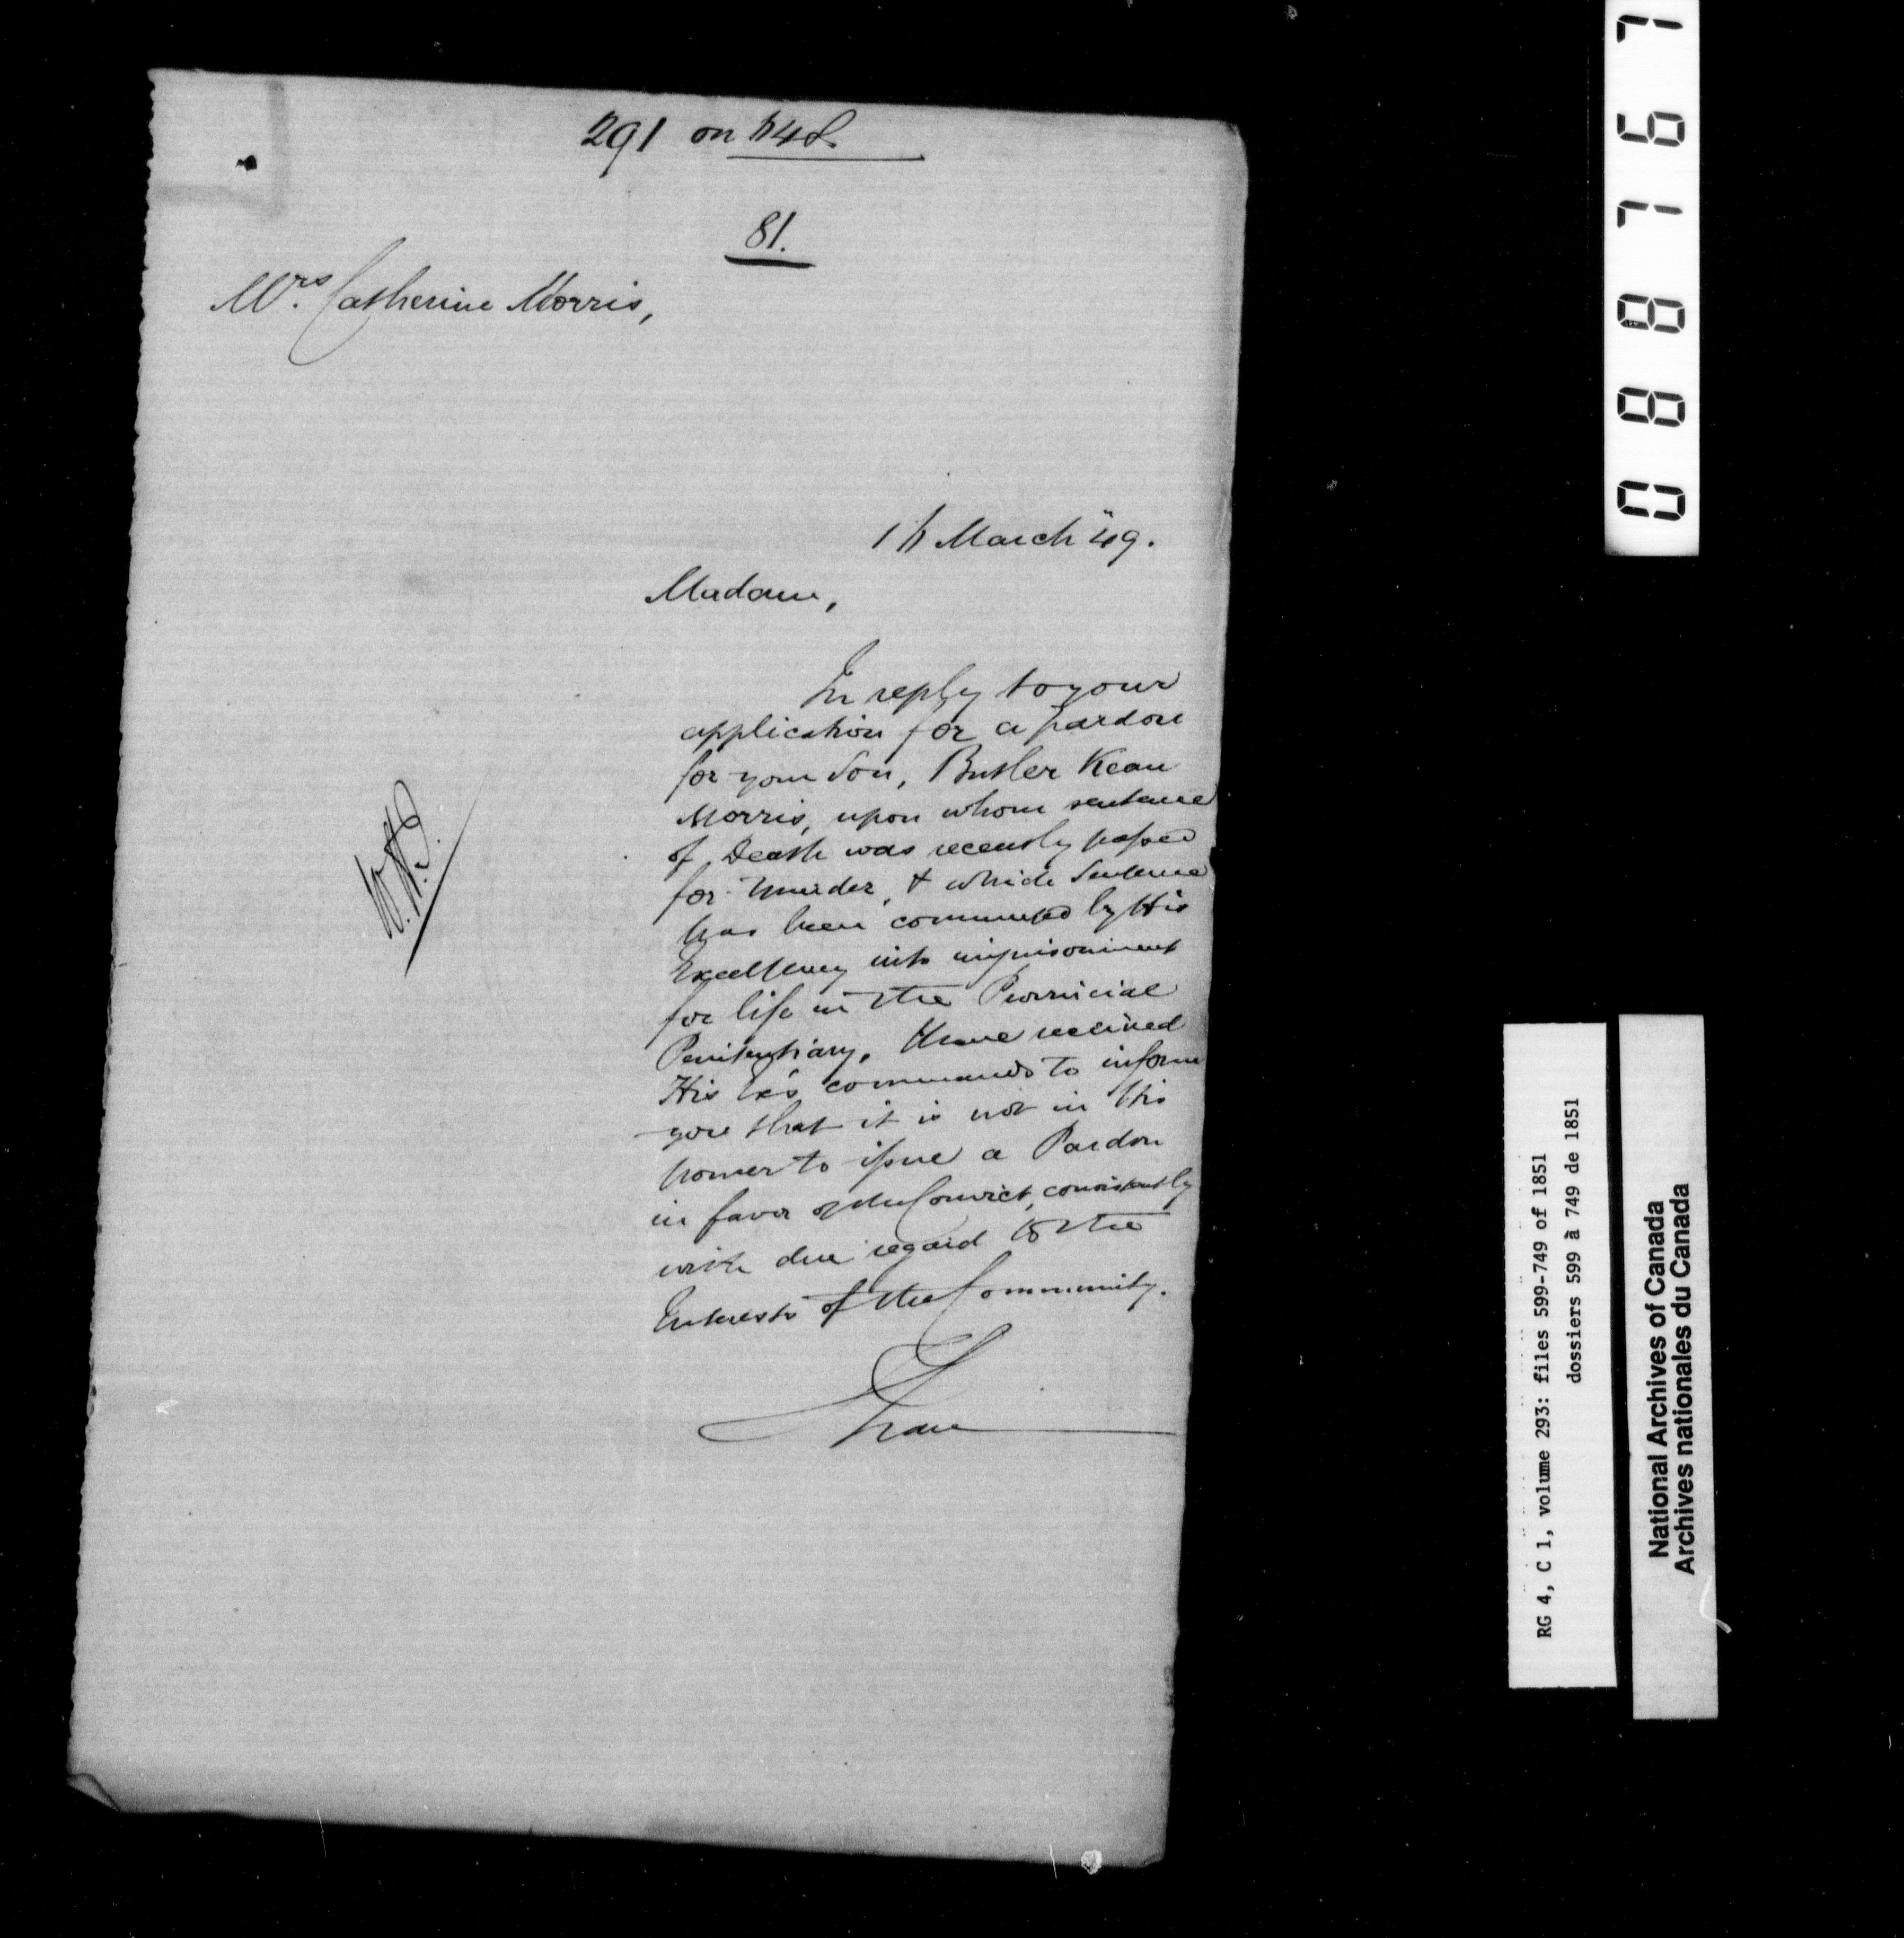 291 on 648
81.
Mrs. Catherine Morris,
16 March "49.
Madam,
In reply to your
application for a pardon
for your Son, Butler Kean
Morris, upon whom sentence
of Death was recently passed
for Murder, & which Sentence
has been commuted by His
Excellency into imprisonment
for life in the Provincial
Penitentiary. I have received
His Ex's commands to inform
you that it is not in His
power to issue a Pardon
in favor of the Convict, consistently
with due regard to the
Interests of the Community.
I have
088 7167
RG 4, C 1, volume 293: files 599-749 of 1851
dossiers 599 à 749 de 1851
National Archives of Canada
Archives nationales du Canada